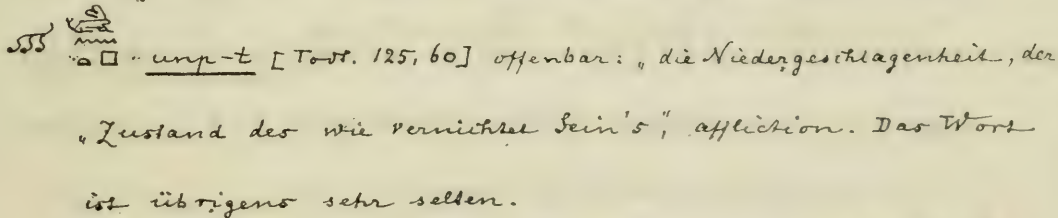 unp-t [Todt. 125, 60] offenbar: „die Niedergeschlagenheit, der
„Zustand des wie vernichtet Sein's“, affliction. Das Wort
ist übrigens sehr selten.